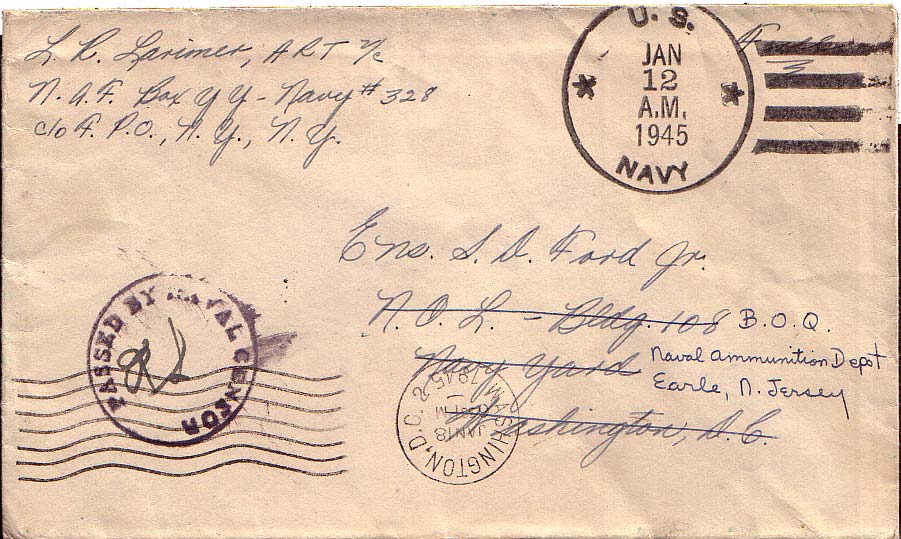 L. R. Larimer, ART 2/c
N.A.F. Box YY - Navy # 328
c/o F. P.O., N. Y., N. Y.
Free
U. S.
JAN
12
A.M.
1945
NAVY
Ens. S. D. Ford Jr.
N. O. L. - Bldg. 108 B. O. Q.
Navy Yard Naval Ammunition Depot
Earle, N. Jersey
Washington, D.C.
PASSED BY NAVAL CENSOR
WASHINGTON, D.C. 2
JAN 18
1945